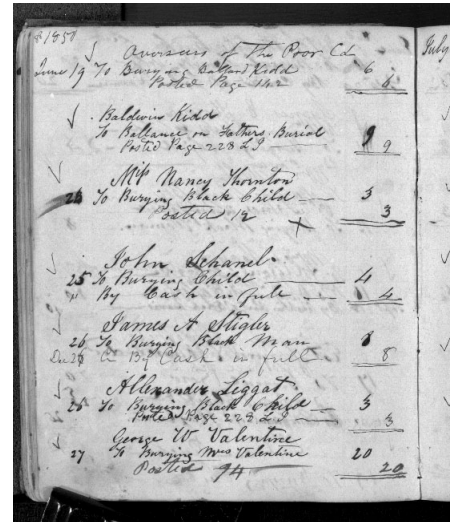 1850
Overseers of the Poor Cd
June 19 To Burying Ballard Kidd 6
Posted Page 142 6
Baldwin Kidd
To Ballance on Fathers Burial 9
Posted Page 228 L I 9
Miss Nancy Thornton
24 To Burying Black Child 3
Posted 12 X 3
John Schanel
25 To Burying Child 4
" By Cash in full 4
James A Stigler
26 To Burying Black Man 8
26 By Cash in full 8
Allexander Liggat
26 To Burying Black Child 3
Posted Page 228 L I 3
George W Valentine
27 To Burying Mrs Valentine 20
Posted 94 20
July